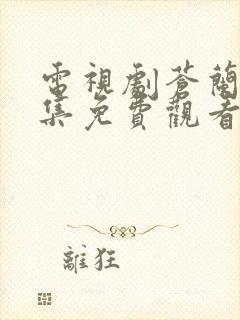 電視劇蒼蘭
集免費觀看
離狂